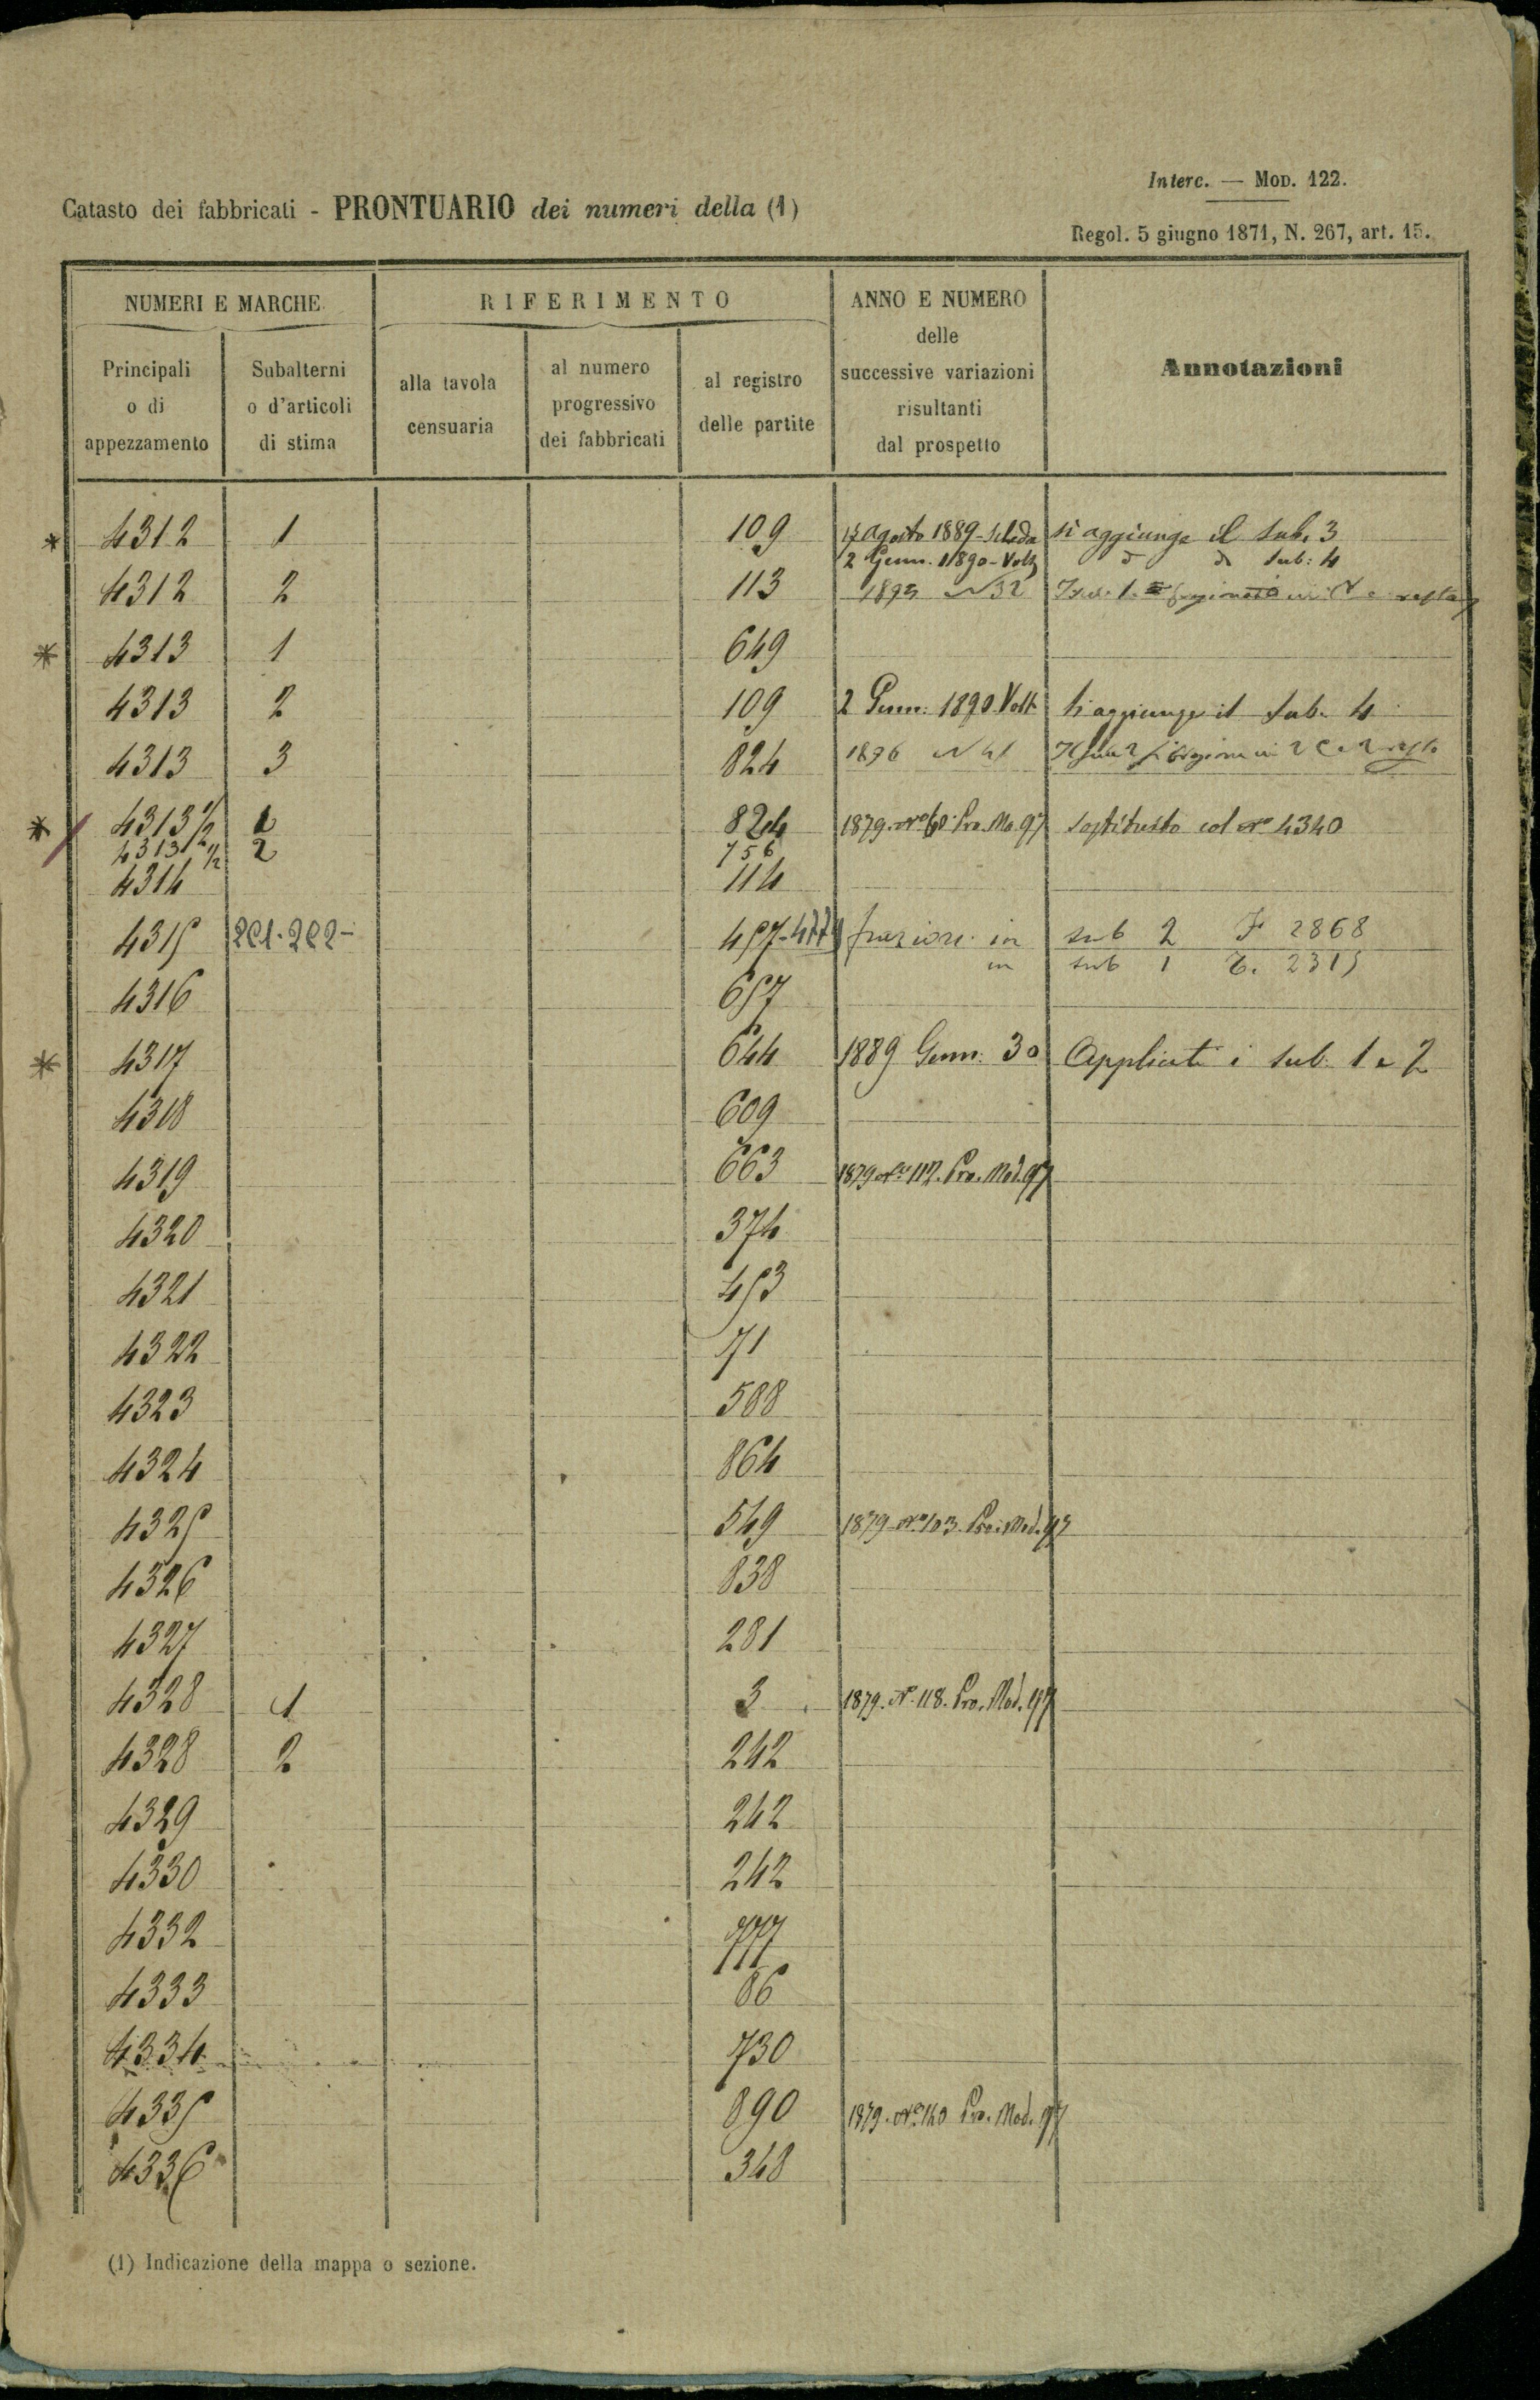 Interc. — Mod. 122.
Catasto dei fabbricati - PRONTUARIO dei numeri della (1)
Regol. 5 giugno 1871, N. 267, art. 15.
NUMERI E MARCHE
RIFERIMENTO
ANNO E NUMERO
delle
successive variazioni
risultanti
dal prospetto
Annotazioni
Principali
o di
appezzamento
Subalterni
o d'articoli
di stima
alla tavola
censuaria
al numero
progressivo
dei fabbricati
al registro
delle partite
* 4312 1 109 agosto 1889 - Scheda si aggiunge il sub. 3
2 Genn. 1890 - Volt sub: 4
4312 2 113 N 32
* 4313 1 649
4313 2 109 2 Genn: 1890 Volt si aggiunge il sub. 4
4313 3 824 1896 N 41
* 4313 1/2 1 824 1879. N° 60. Pro. Mo. 97 sostituito col N° 4340
4313 1/2 2 756
4314 114
4315 2C1. 2C2 - 457 - frazione in sub 2 F 2868
in sub 1 C. 2315
4316 657
* 4317 644 1889 Genn: 30 Applicati i sub. 1 e 2
4318 609
4319 663 1879 N° 112. Pro. Mod. 97
4320 374
4321 453
4322 71
4323 588
4324 864
4325 549 1879 N° 103. Pro. Mod. 97
4326 838
4327 281
4328 1 3 1879. N° 118. Pro. Mod. 97
4328 2 242
4329 242
4330 242
4332 777
4333 86
4334 730
4335 890 1879. N° 140 Pro. Mod. 97
4336 348
(1) Indicazione della mappa o sezione.